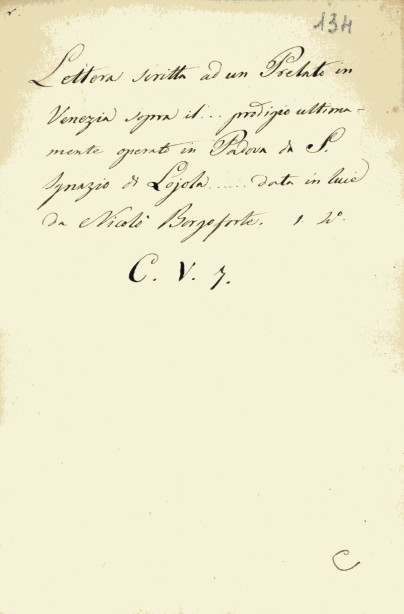 134
Lettera scritta ad un Prelato in
Venezia sopra il... prodigio ultima-
mente operato in Padova da S.
Ignazio di Lojola...... data in luce
da Nicolò Borgoforte. 1
C. V. 7.
C